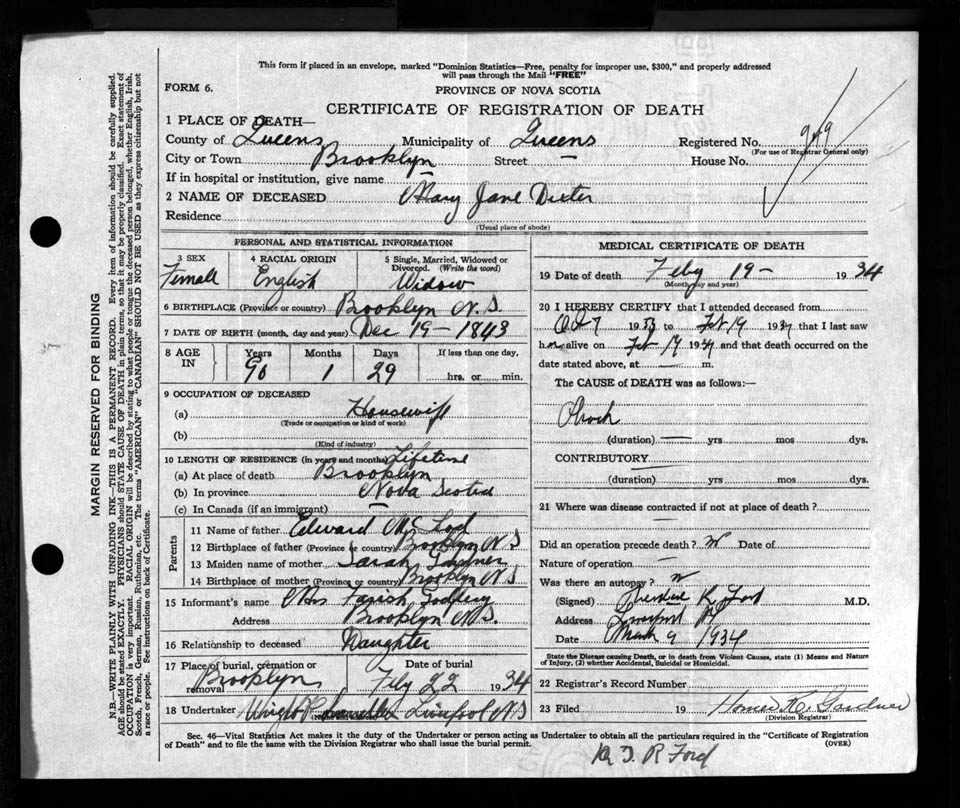 This form if placed in an envelope, marked "Dominion Statistics—Free, penalty for improper use, $300," and properly addressed
will pass through the Mail "FREE"
FORM 6.
PROVINCE OF NOVA SCOTIA
CERTIFICATE OF REGISTRATION OF DEATH
1 PLACE OF DEATH—
County of Queens Municipality of Queens Registered No. 949
(For use of Registrar General only)
City or Town Brooklyn Street — House No.
If in hospital or institution, give name —
2 NAME OF DECEASED Mary Jane Dexter
Residence
(Usual place of abode)
PERSONAL AND STATISTICAL INFORMATION
3 SEX 4 RACIAL ORIGIN 5 Single, Married, Widowed or Divorced. (Write the word)
Female English Widow
6 BIRTHPLACE (Province or Country) Brooklyn N.S
7 DATE OF BIRTH (month, day and year) Dec 19 - 1843
8 AGE IN Years Months Days If less than one day,
90 1 29 hrs. or min.
9 OCCUPATION OF DECEASED
(a) Housewife
(Trade or occupation or kind of work)
(b)
(Kind of industry)
10 LENGTH OF RESIDENCE (in years and months) Lifetime
(a) At place of death Brooklyn
(b) In province Nova Scotia
(c) In Canada (if an immigrant) —
Parents
11 Name of father Edward McLeod
12 Birthplace of father (Province or country) Brooklyn N S
13 Maiden name of mother Sarah Gardner
14 Birthplace of mother (Province or country) Brooklyn N S
15 Informant's name Mrs Farish Godfrey
Address Brooklyn N.S.
16 Relationship to deceased Daughter
17 Place of burial, cremation or removal Date of burial
Brooklyn Feby 22 1934
18 Undertaker Liverpool N S
MEDICAL CERTIFICATE OF DEATH
19 Date of death Feby 19 - 1934
(Month, day and year)
20 I HEREBY CERTIFY that I attended deceased from
Oct 7 1933 to Feb 19 1934 that I last saw
h alive on Feb 19 1934 and that death occurred on the
date stated above, at — m.
The CAUSE of DEATH was as follows:—
(duration) — yrs mos dys.
CONTRIBUTORY
(duration) yrs mos dys.
21 Where was disease contracted if not at place of death?
—
Did an operation precede death? Date of
Nature of operation —
Was there an autopsy?
(Signed) Ford M.D.
Address Liverpool
Date March 9 1934
State the Disease causing Death, or in death from Violent Causes, state (1) Means and Nature
of Injury, (2) whether Accidental, Suicidal or Homicidal.
22 Registrar's Record Number
23 Filed 19 Homer Gardner
(Division Registrar)
Sec. 46—Vital Statistics Act makes it the duty of the Undertaker or person acting as Undertaker to obtain all the particulars required in the "Certificate of Registration
of Death" and to file the same with the Division Registrar who shall issue the burial permit. (OVER)
Dr T R Ford
MARGIN RESERVED FOR BINDING
N.B.—WRITE PLAINLY WITH UNFADING INK—THIS IS A PERMANENT RECORD. Every item of information should be carefully supplied.
AGE should be stated EXACTLY. PHYSICIANS should STATE CAUSE OF DEATH in plain terms, so that it may be properly classified. Exact statement of
OCCUPATION is very important. RACIAL ORIGIN will be described by stating to what people or tongue the deceased person belonged, whether English, Irish,
Scotch, French, German, Russian, Ruthenian, etc. The terms "AMERICAN" or "CANADIAN" SHOULD NOT BE USED as they express citizenship but not
a race or people. See instructions on back of Certificate.